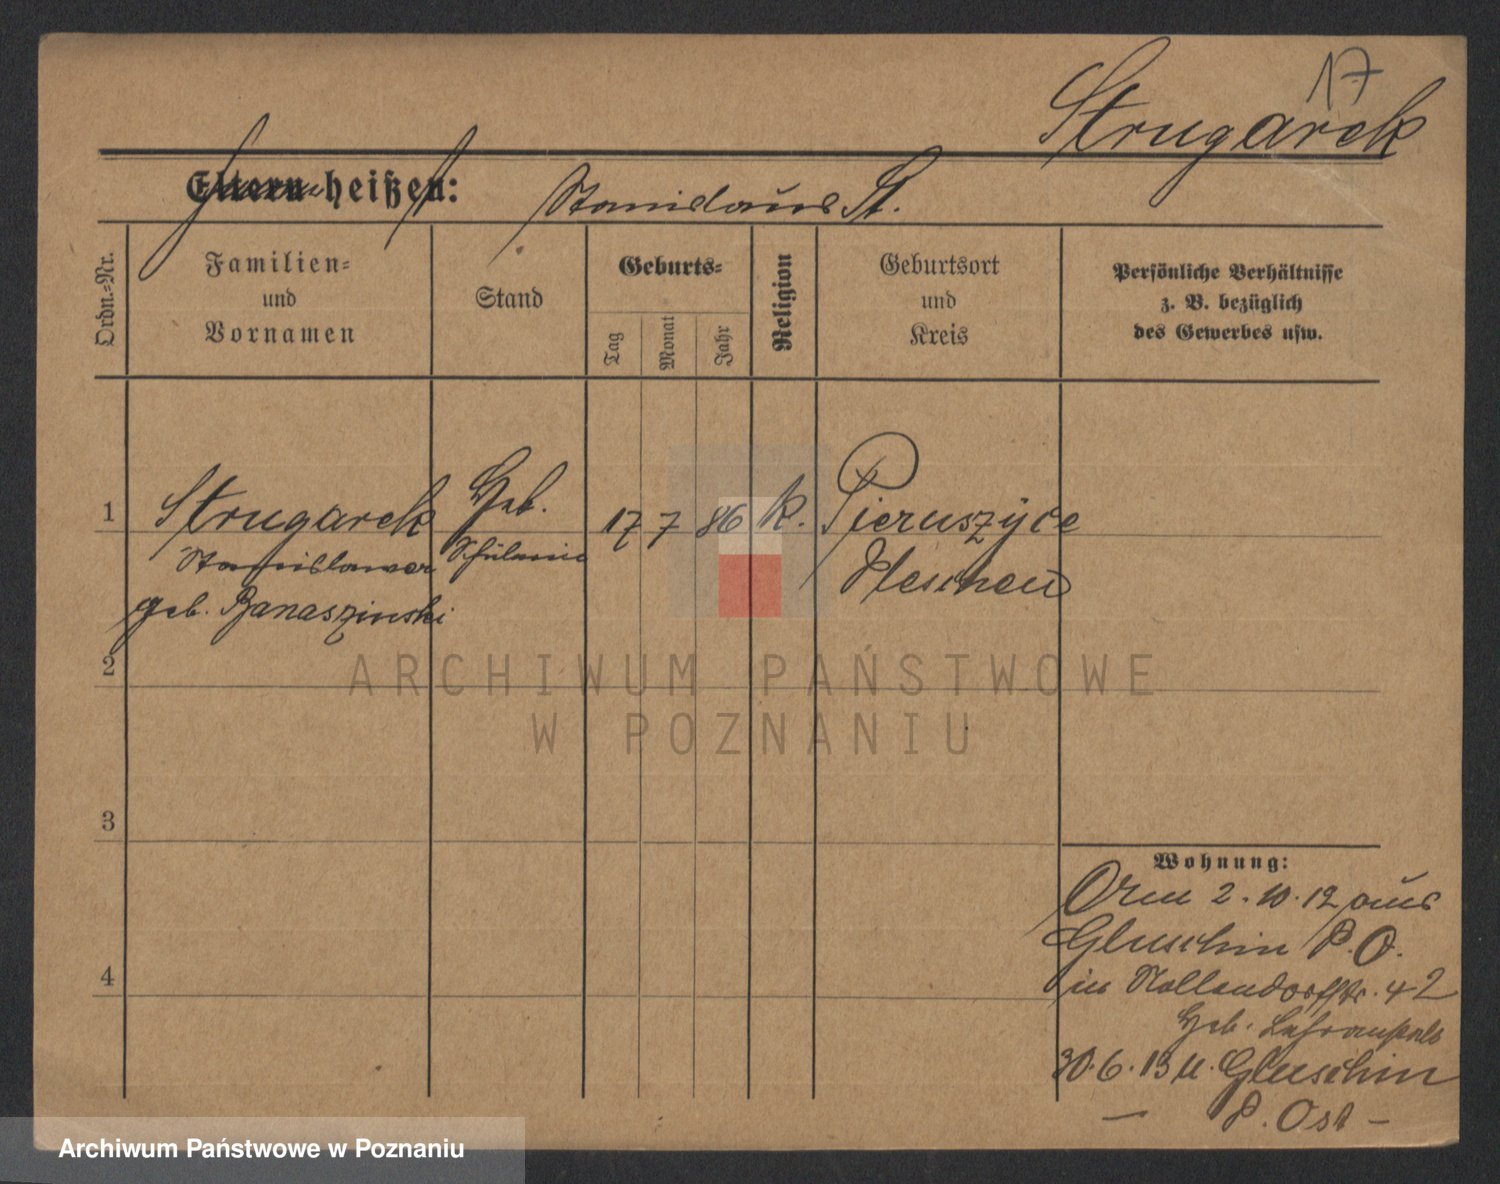 17
Strugarek
Eltern heißen: Stanislaus St.
Ordn.-Nr.
Familien-
und
Vornamen
Stand
Geburts-
Tag
Monat
Jahr
Religion
Geburtsort
und
Kreis
Persönliche Verhältnisse
z. B. bezüglich
des Gewerbes usw.
1 Strugarek Heb. 17 7 86 k. Pieruszyce
Schülerin Pleschen
geb. Banaszinski
2
3
4
Wohnung:
2.10.12 aus
Gluschin P.O.
in Nollendorfstr. 42
Heb.
30.6.13 n. Gluschin
- P. Ost -
ARCHIWUM PAŃSTWOWE
W POZNANIU
Archiwum Państwowe w Poznaniu